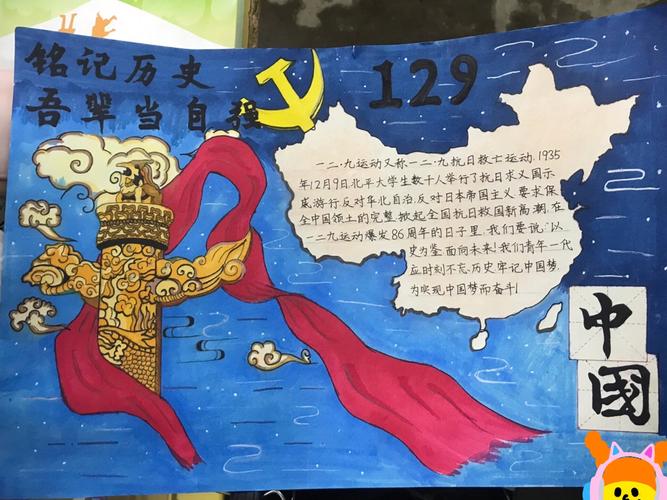 铭记历史
吾辈当自强
129
一二·九运动又称一二·九抗日救士运动.1935
年12月9日,北平大学生数十人举行了抗日求义国示
威游行,反对华北自治,反对日本帝国主义,要求保
全中国领土的完整,掀起全国抗日救国新高潮,在
一二九运动爆发86周年的日子里,我们要说:"以
史为鉴,面向未来!我们青年一代
应时刻不忘历史,牢记中国梦,
为实现中国梦而奋斗!
中
國